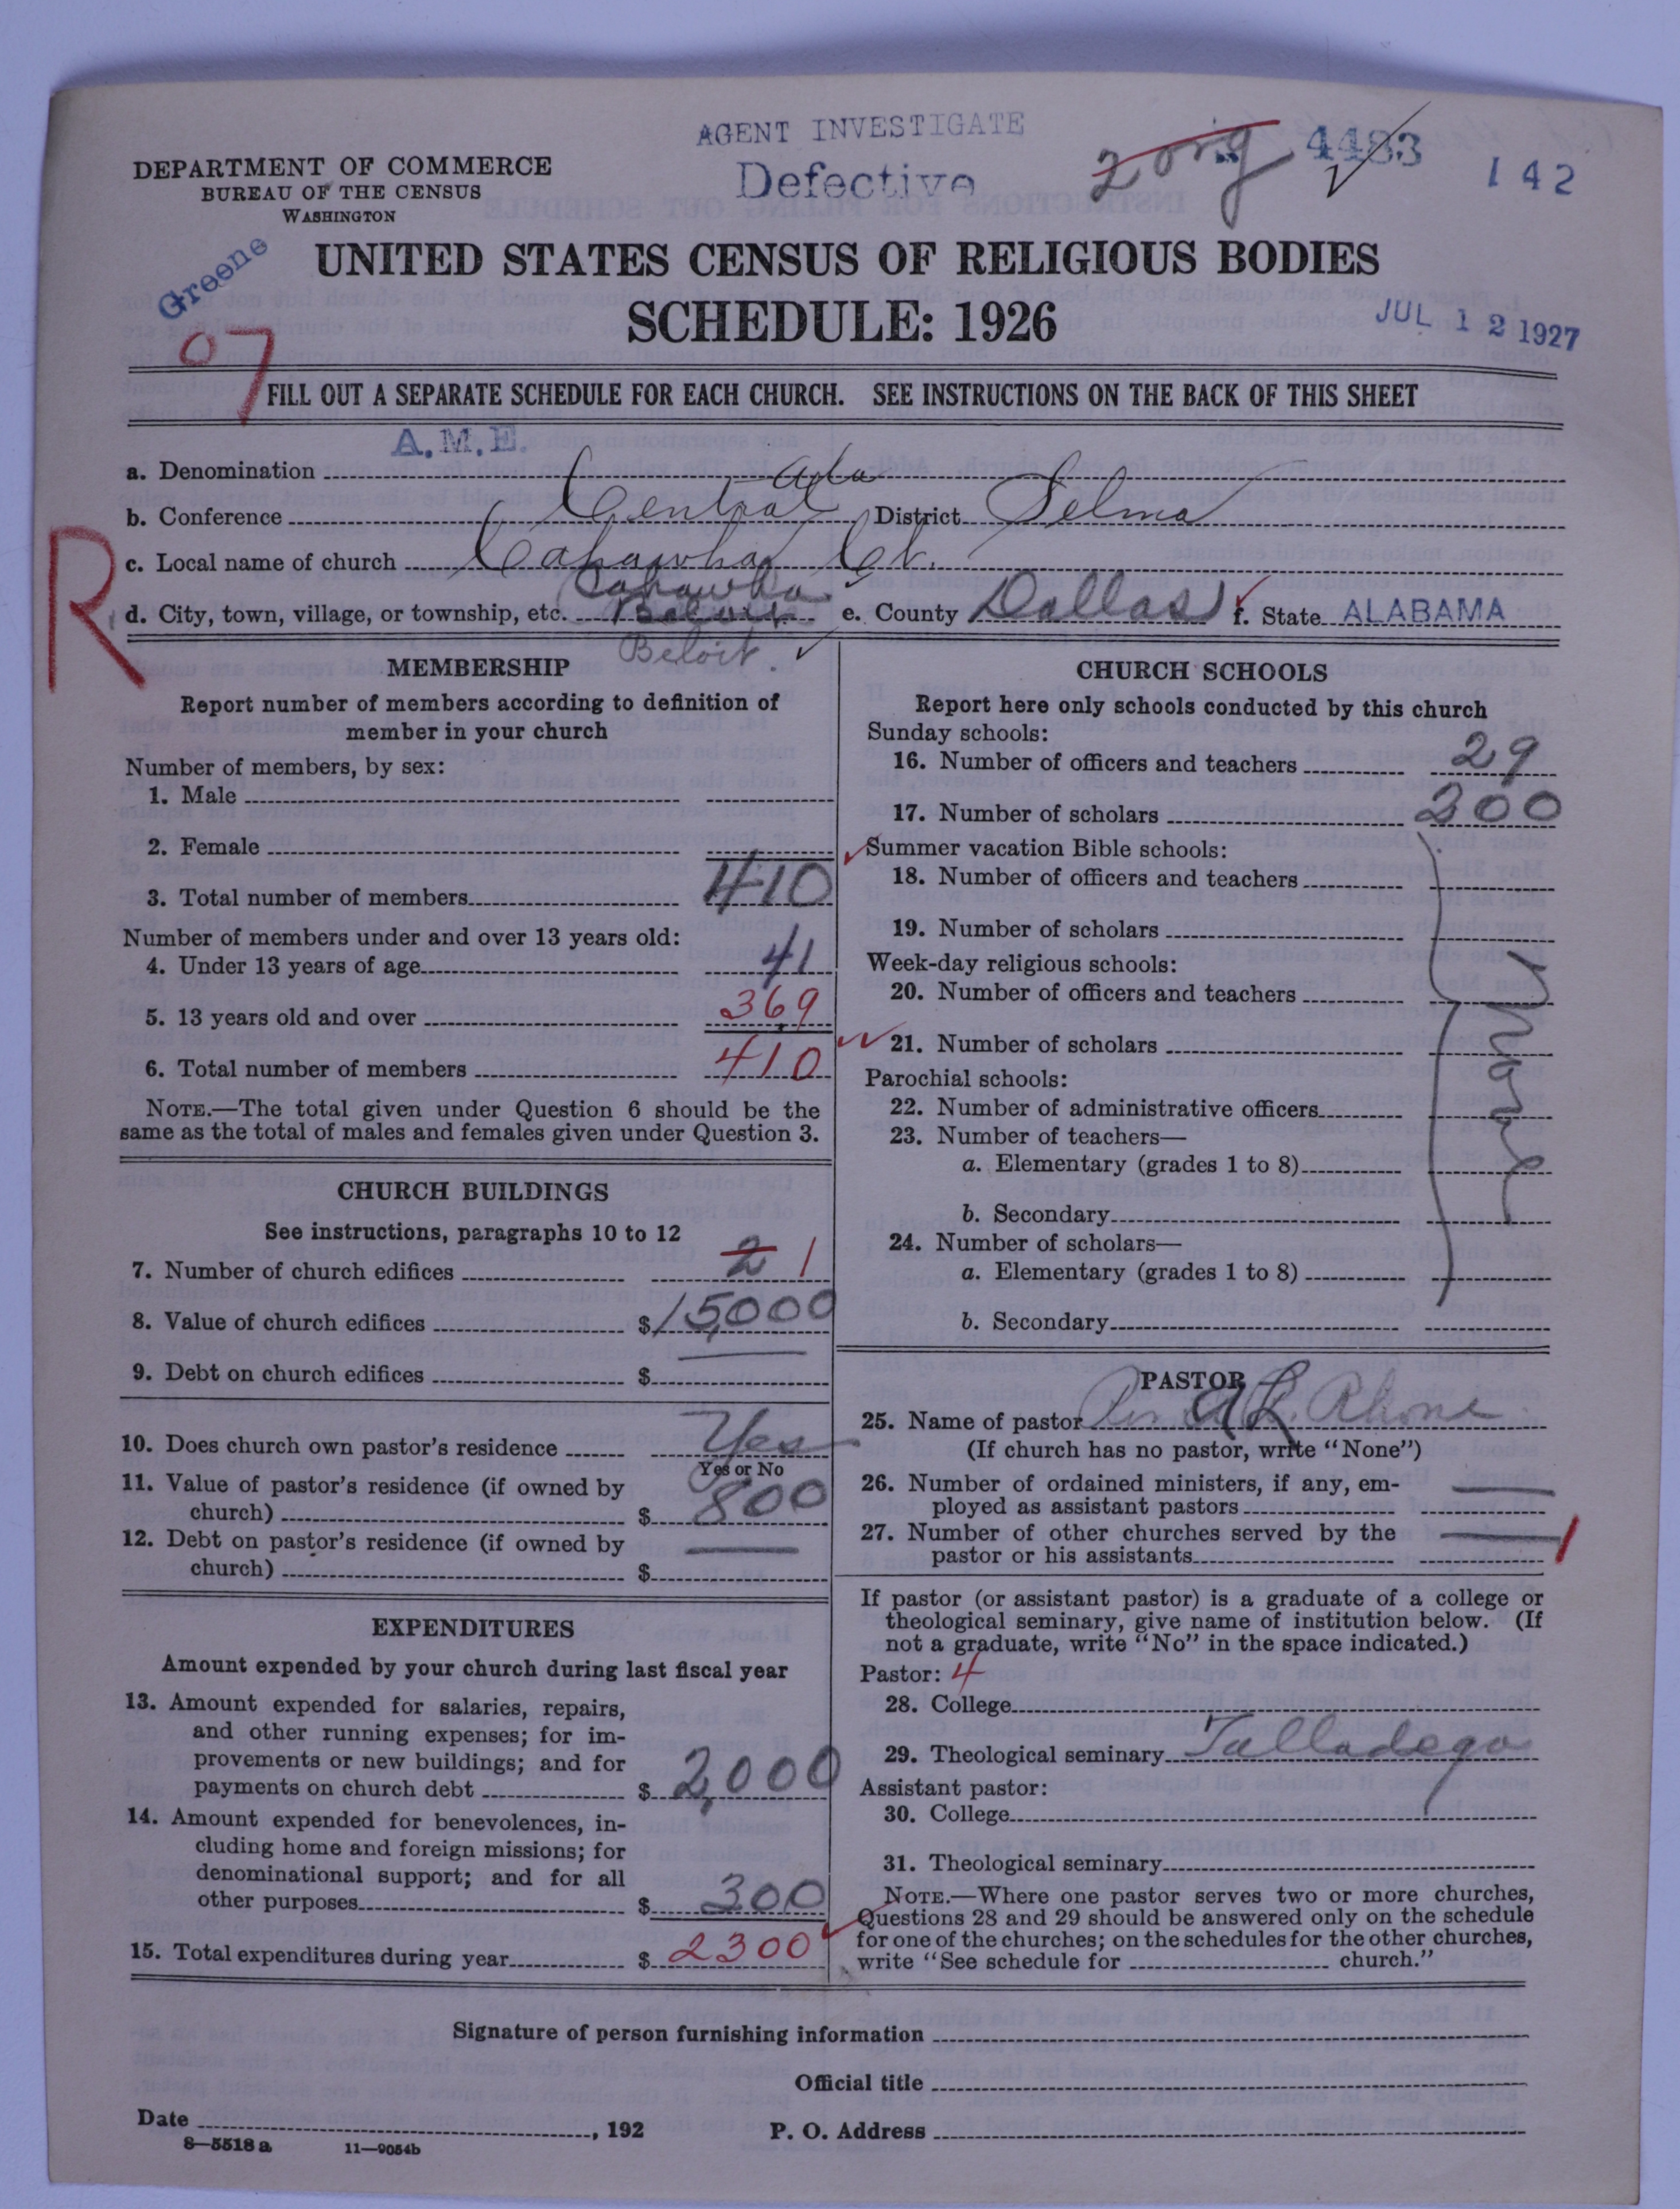 AGENT INVESTIGATE
Defective
2 orig 4483 142
DEPARTMENT OF COMMERCE
BUREAU OF THE CENSUS
WASHINGTON
Greene
UNITED STATES CENSUS OF RELIGIOUS BODIES
SCHEDULE: 1926
JUL 12 1927
07
FILL OUT A SEPARATE SCHEDULE FOR EACH CHURCH. SEE INSTRUCTIONS ON THE BACK OF THIS SHEET
A.M.E.
a. Denomination
b. Conference Central Ala District Selma
c. Local name of church Cahawba Ct.
R
Cahawba
d. City, town, village, or township, etc. Beloit e. County Dallas f. State ALABAMA
Beloit.
MEMBERSHIP
Report number of members according to definition of
member in your church
Number of members, by sex:
1. Male
2. Female
3. Total number of members 410
Number of members under and over 13 years old:
4. Under 13 years of age 41
5. 13 years old and over 369
6. Total number of members 410
NOTE.—The total given under Question 6 should be the
same as the total of males and females given under Question 3.
CHURCH BUILDINGS
See instructions, paragraphs 10 to 12
7. Number of church edifices 2 1
8. Value of church edifices $15,000
9. Debt on church edifices $
10. Does church own pastor's residence Yes
Yes or No
11. Value of pastor's residence (if owned by
church) $ 800
12. Debt on pastor's residence (if owned by
church) $
EXPENDITURES
Amount expended by your church during last fiscal year
13. Amount expended for salaries, repairs,
and other running expenses; for im-
provements or new buildings; and for
payments on church debt $ 2,000
14. Amount expended for benevolences, in-
cluding home and foreign missions; for
denominational support; and for all
other purposes $ 300
15. Total expenditures during year $ 2300
CHURCH SCHOOLS
Report here only schools conducted by this church
Sunday schools:
16. Number of officers and teachers 29
17. Number of scholars 200
Summer vacation Bible schools:
18. Number of officers and teachers
19. Number of scholars
Week-day religious schools:
20. Number of officers and teachers
21. Number of scholars
Parochial schools:
22. Number of administrative officers
23. Number of teachers—
a. Elementary (grades 1 to 8)
b. Secondary
24. Number of scholars—
a. Elementary (grades 1 to 8)
b. Secondary
PASTOR
25. Name of pastor A L Rhone
(If church has no pastor, write "None")
26. Number of ordained ministers, if any, em-
ployed as assistant pastors
27. Number of other churches served by the
pastor or his assistants 1
If pastor (or assistant pastor) is a graduate of a college or
theological seminary, give name of institution below. (If
not a graduate, write "No" in the space indicated.)
Pastor: 4
28. College
29. Theological seminary Talladega
Assistant pastor:
30. College
31. Theological seminary
NOTE.—Where one pastor serves two or more churches,
Questions 28 and 29 should be answered only on the schedule
for one of the churches; on the schedules for the other churches,
write "See schedule for church."
Signature of person furnishing information
Official title
Date , 192 P. O. Address
8—5518 a 11—9054b